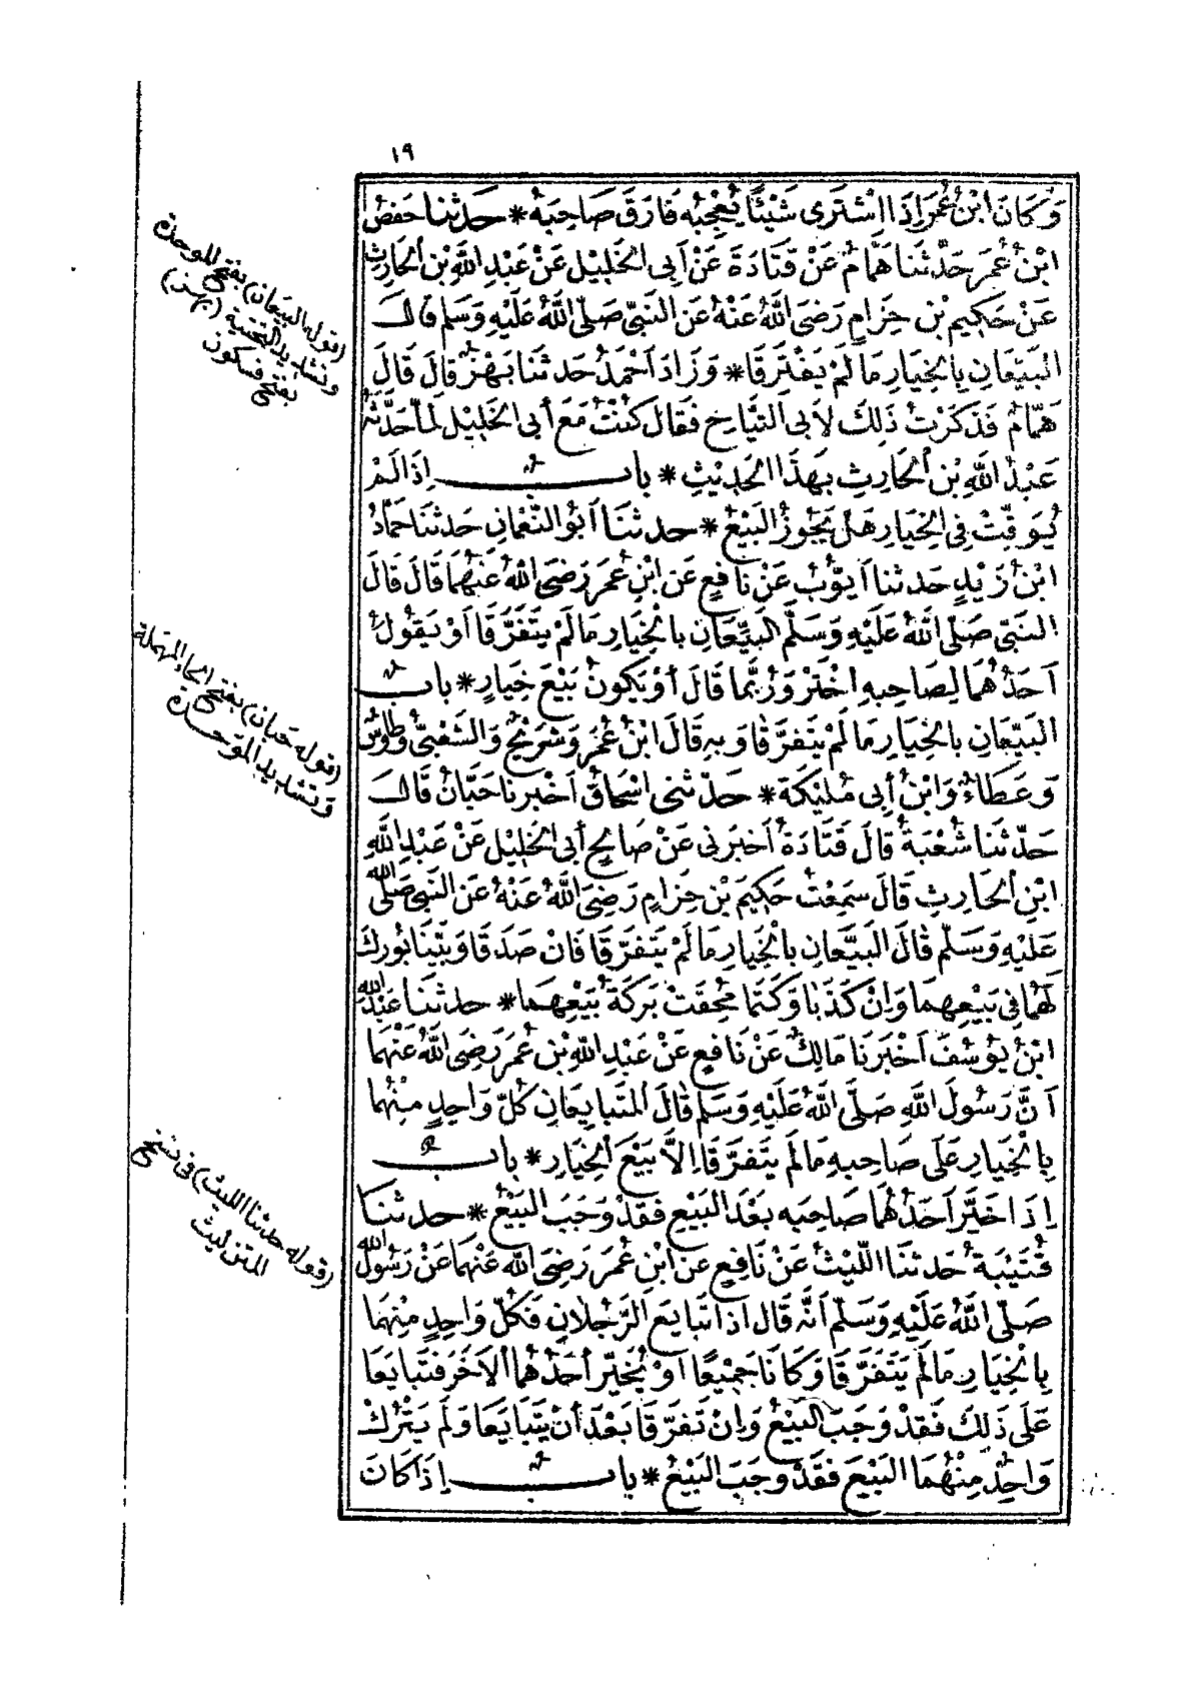 ١٩
وَكَانَ ابْنُ عُمَرَ اِذَا اشْتَرَى شَيْئًا يُعْجِبُهُ فَارَقَ صَاحِبَهُ * حَدثنا حَفْصُ
ابْنُ عُمَرَ حَدَّثَنَا هَمَّامٌ عَنْ قَتَادَةَ عَنْ اَبِى الْخَلِيْلِ عَنْ عَبْدِ اللَّهِ بْنِ الْحَارِثِ
عَنْ حَكِيمِ بْنِ حِزَامٍ رَضِىَ اللَّهُ عَنْهُ عَنِ النَّبِىِّ صَلَّى اللَّهُ عَلَيْهِ وَسَلَّمَ قَالَ
الْبَيِّعَانِ بِالْخِيَارِ مَا لَمْ يَفْتَرِقَا * وَزَادَ اَحْمَدُ حَدثنَا بَهْزٌ قَالَ قَالَ
هَمَّامٌ فَذَكَرْتُ ذَلِكَ لِأَبِى التَّيَّاحِ فَقَالَ كُنْتُ مَعَ أَبِى الْخَلِيْلِ لَمَّا حَدَّثَهُ
عَبْدُ اللَّهِ بْنُ الْحَارِثِ بِهَذَا الْحَدِيْثِ * باب اِذَا لَمْ
يُوَقِّتْ فِى الْخِيَارِ هَلْ يَجُوزُ الْبَيْعُ * حدثنَا اَبُو النُّعْمَانِ حَدثنَا حَمَّادُ
ابْنُ زَيْدٍ حَدثنا اَيّوُبُ عَنْ نَافِعٍ عَنِ ابْنِ عُمَرَ رَضِىَ اللَّهُ عَنْهُمَا قَالَ قَالَ
النَّبِىّ صَلَّى اللَّهُ عَلَيْهِ وَسَلَّمَ الْبَيِّعَانِ بِالْخِيَارِ مَا لَمْ يَتَفَرَّقَا اَوْ يَقُولُ
اَحَدُهُمَا لِصَاحِبِهِ اِخْتَرْ وَرُبَّمَا قَالَ أَوْ يَكُونُ بَيْعَ خِيَارٍ * باب
الْبَيِّعَانِ بِالْخِيَارِ مَا لَمْ يَتَفَرَّقَا وَبِهِ قَالَ ابْنُ عُمَرَ وَشُرَيْحٌ وَالشَّعْبِىُّ وَطَاوُسٌ
وَعَطَاءٌ وَابْنُ أَبِى مُلَيْكَةَ * حَدَّثنى اِسْحَاقُ اَخْبرنَا حَبَّانُ قَالَ
حَدّثنَا شُعْبَةُ قَالَ قَتَادَةُ أَخبَرَنِى عَنْ صَالِحٍ أَبِى الْخَلِيْلِ عَنْ عَبْدِ اللَّهِ
ابْنِ الْحَارِثِ قَالَ سَمِعْتُ حَكِيمَ بْنَ حِزَامٍ رَضِىَ اللَّهُ عَنْهُ عَنِ النَّبِىِّ صَلَّى اللَّه
عَلَيْهِ وَسَلَّمَ قَالَ الْبَيِّعَانِ بِالْخِيَارِ مَا لَمْ يَتَفَرَّقَا فَاِنْ صَدَقَا وَبَيَّنَا بُورِكَ
لَهُمَا فِى بَيْعِهِمَا وَاِنْ كَذَبَا وَكَتَمَا مُحِقَتْ بَرَكَةُ بَيْعِهِمَا * حدثنَا عَبْدُ اللَّهِ
ابْنُ يُوْسُفَ اَخْبَرَنَا مَالِكٌ عَنْ نَافِعٍ عَنْ عَبْدِ اللَّهِ بْنِ عُمَرَ رَضِىَ اللَّهُ عَنْهُمَا
اَنَّ رَسُولَ اللَّهِ صَلَّى اللَّهُ عَلَيْهِ وَسَلَّمَ قَالَ الْمُتَبَايِعَانِ كُلُّ وَاحِدٍ مِنْهُمَا
بِالْخِيَارِ عَلَى صَاحِبِهِ مَا لَم يَتَفَرَّقَا اِلاَّ بَيْعَ الْخِيَارِ * باب
اِذَا خَيَّرَ اَحَدُهُمَا صَاحِبَه بَعْدَ الْبَيْعِ فَقَدْ وَجَبَ الْبَيْعُ * حدثنَا
قُتَيْبَةُ حَدثنَا اللَّيْثُ عَنْ نَافِعٍ عَنِ ابْنِ عُمَرَ رَضِىَ اللَّهُ عَنْهُمَا عَنْ رَسُولِ اللَّه
صَلَّى اللَّهُ عَلَيْهِ وَسَلَّمَ اَنَّهُ قَالَ اِذَا تَبَايَعَ الرَّجُلَانِ فَكُلُّ وَاحِدٍ مِنْهُمَا
بِالْخِيَارِ مَا لَمْ يَتَفَرَّقَا وَكَانَا جَمِيْعًا اَوْ يُخَيِّرُ أَحَدُهُمَا الْآخَرَ فَتَبَايَعَا
عَلَى ذَلِكَ فَقَدْ وَجَبَ الْبَيْعُ وَاِنْ تَفَرَّقَا بَعْدَ أَنْ يَتَبَايَعَا وَلَمْ يَتْرُكْ
وَاحِدٌ مِنْهُمَا الْبَيْعَ فَقَدْ وَجَبَ الْبَيْعُ * باب اِذَا كَانَ
(قوله البيعان) بفتح الموحدة
وتشديد التحتية (بهز)
بفتح فسكون
(قوله حبان) بفتح الحاء المهملة
وتشديد الموحدة
(قوله حدثنا الليث) فى نسخ
المتن ليث